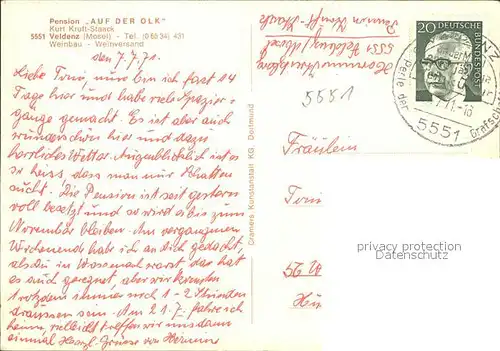 Pension „AUF DER OLK"
Kurt Kruft-Staack
5551 Veldenz (Mosel) - Tel. (0 65 34) 431
Weinbau - Weinversand
den 7.7.71.
Liebe Tini, nun bin ich fast 14
Tage hier und habe viele Spazier-
gänge gemacht. Es ist aber auch
wunderschön hier und dazu
herrliches Wetter. Augenblicklich ist es
so heiss, dass man nur Schatten
sucht. Die Pension ist seit gestern
voll besetzt und so wird es bis zum
November bleiben. Am vergangenen
Wochenende habe ich an dich gedacht,
als Du in warst, das hat
es auch geregnet, aber wir konnten
trotzdem immer noch 1-2 Stunden
draussen sein. Am 21.7. fahre ich
heim, vielleicht treffen wir uns dann
einmal. Herzl. Grüsse von
Cramers Kunstanstalt KG. Dortmund
Pension Kruft-Staack
5551 Veldenz/Mosel
5551
20
DEUTSCHE
BUNDESPOST
Perle der
Grafsch
5551
Fräulein
Tini
56 W